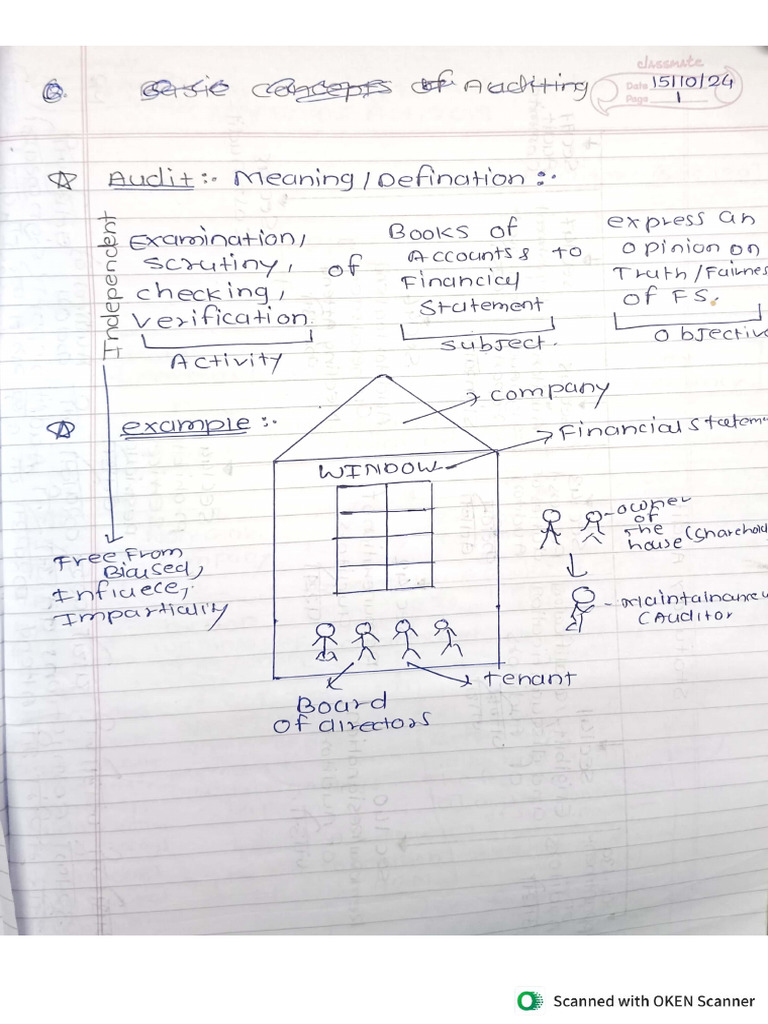 classmate
Date 15/10/24
Page 1
Basic Concepts of Auditing
Audit :- Meaning / Defination :-
Independent
Examination,
scrutiny,
checking,
verification
of
Books of
Accounts &
Financial
Statement
to
express an
opinion on
Truth / Fairnes
of FS.
Activity
Subject.
Objectiv
example :-
company
Financial Statem
WINDOW
owner
of
the
house (Sharehold
Maintainance
(Auditor
Free From
Biased,
Infiuece,
Impartiality
tenant
Board
of directors
Scanned with OKEN Scanner